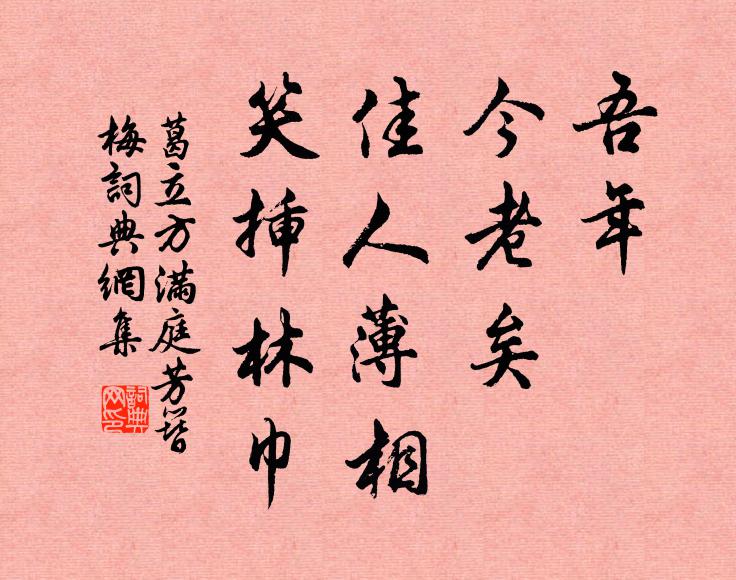 吾年
今老矣
佳人薄相
笑揷林巾
葛立方滿庭芳簪
梅詞典網集
詞典
网印